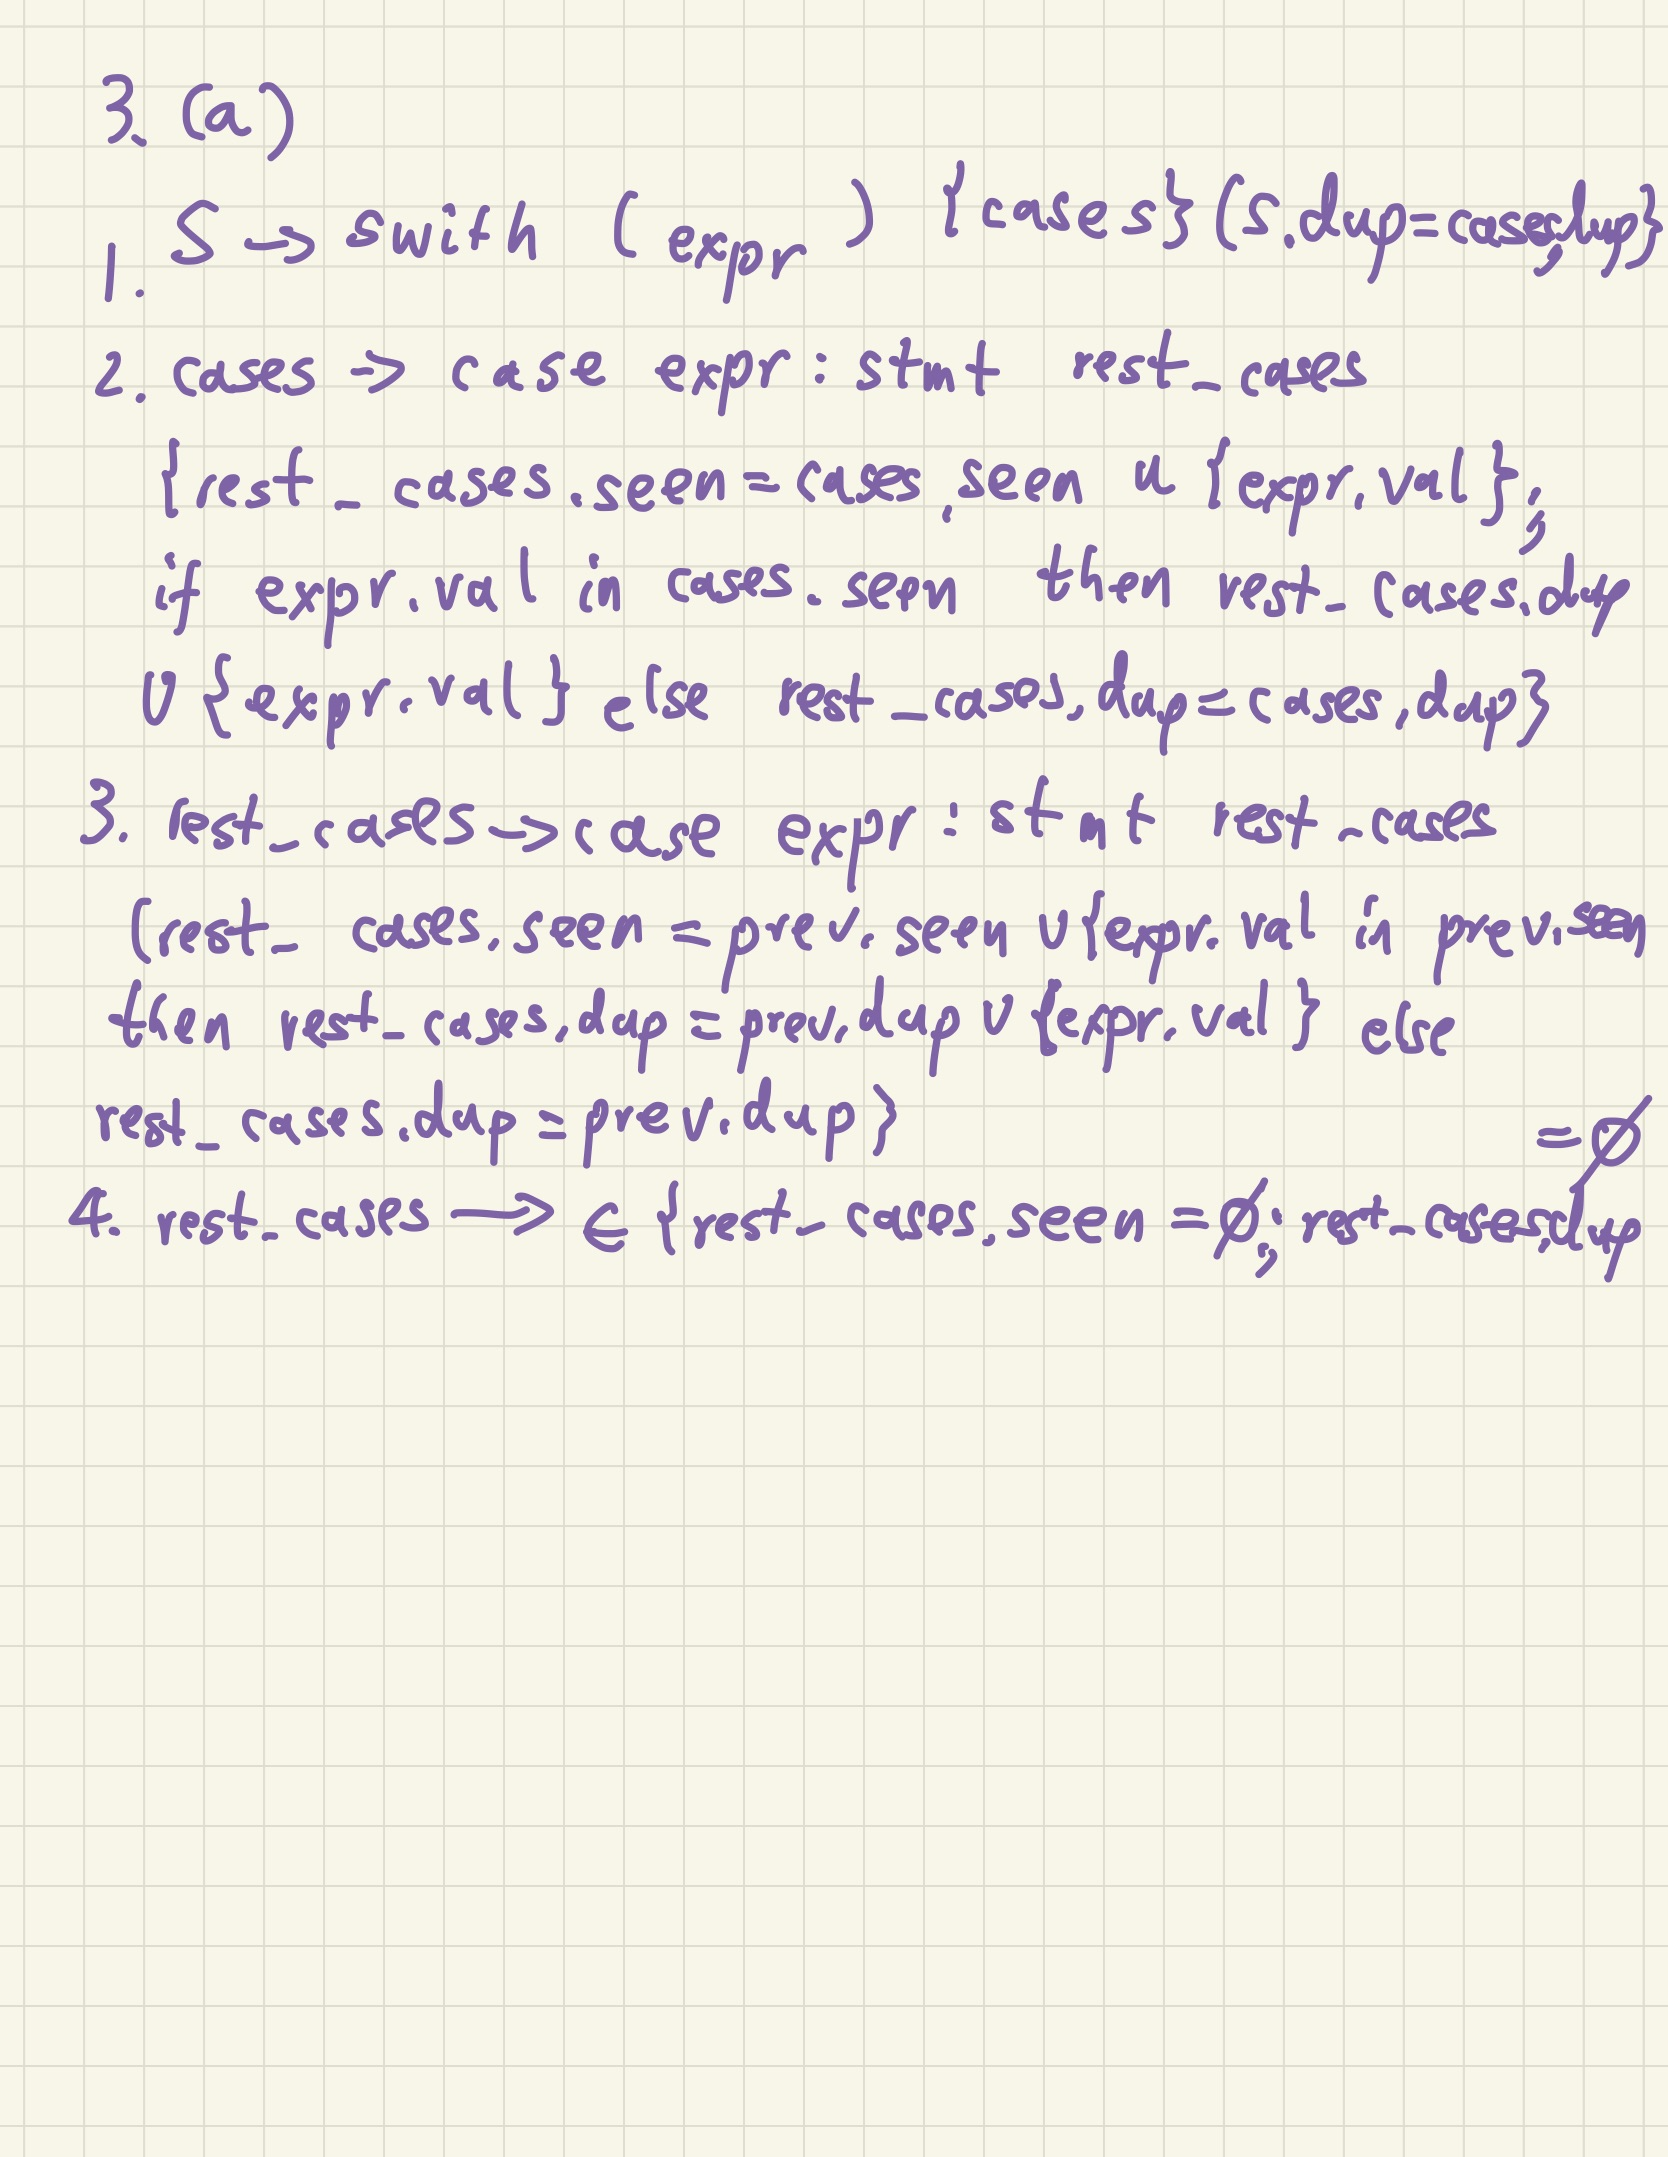 3. (a)
1. S → swith (expr) {cases} (S.dup=cases.dup}
2. cases → case expr : stmt rest_cases
{rest_cases.seen=cases.seen u {expr.val};
if expr.val in cases.seen then rest_cases.dup
U {expr.val} else rest_cases.dup=cases.dup}
3. rest_cases → case expr : stmt rest_cases
(rest_cases.seen = prev.seen U {expr.val in prev.seen
then rest_cases.dup = prev.dup U {expr.val} else
rest_cases.dup = prev.dup}
4. rest_cases → ∈ {rest_cases.seen = ∅; rest_cases.dup = ∅